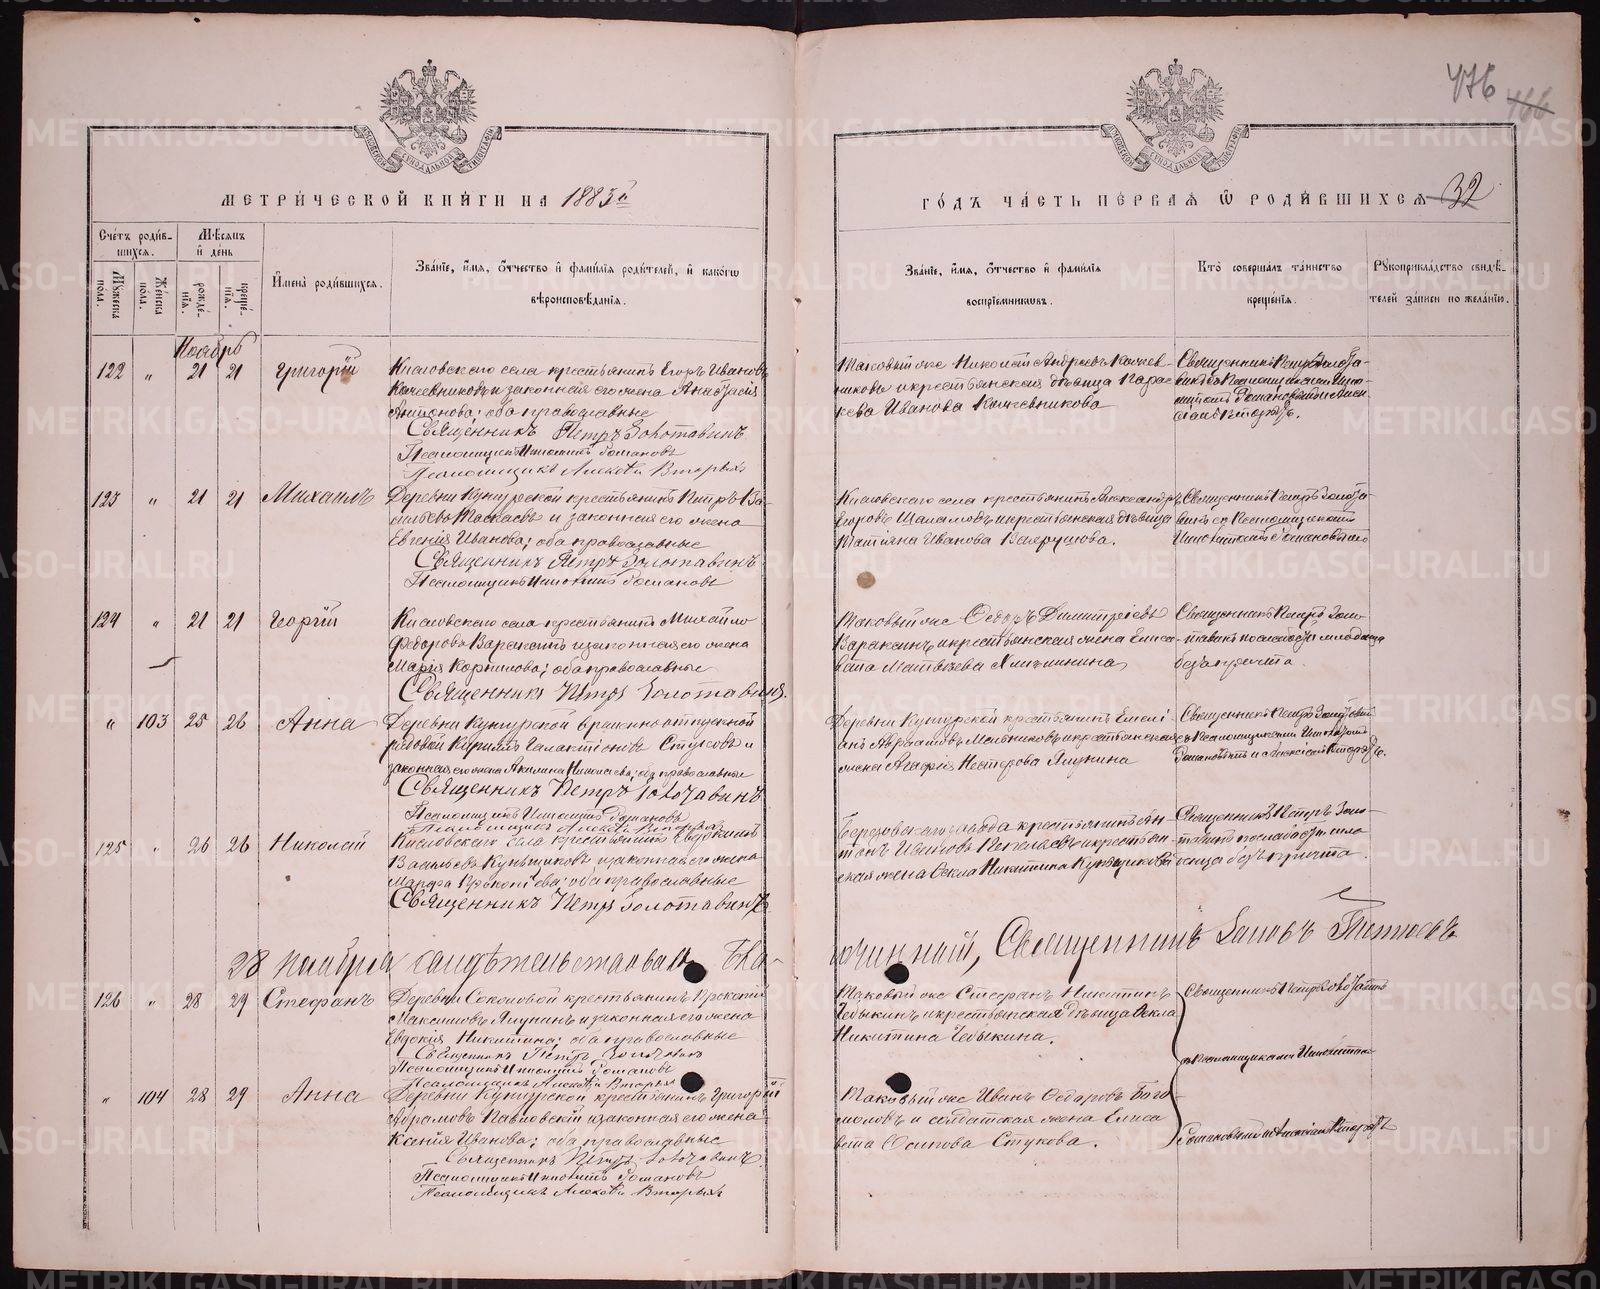 476
466
МЕТРИЧЕСКОЙ КНИГИ НА 1883й
ГОДЪ ЧАСТЬ ПЕРВАЯ Ѿ РОДИВШИХСЯ 32
Счетъ родив-
шихся.
Мѣсяцъ
и день
Мужеска
пола.
Женска
пола.
рожде-
нія.
креще-
нія.
Имена родившихся.
Званіе, имя, отчество и фамилія родителей, и какогѡ
вѣроисповѣданія.
Званіе, имя, отчество и фамилія
воспріемниковъ.
Кто совершалъ таинство
крещенія.
Рукоприкладство свидѣ-
телей записи по желанію.
Ноябрь
122 " 21 21 Григорій
Кисловского села крестьянинъ Егоръ Ивановъ
Качевниковъ и законная его жена Анастасія
Антонова; оба православные
Священникъ Петръ Золотавинъ
Псаломщикъ Ипполитъ Романовъ
Псаломщикъ Алексѣй Вторыхъ
Таковый же Николай Андреевъ Качев-
никовъ и крестьянская дѣвица Парас
кева Иванова Качевникова
123 " 21 21 Михаилъ
Деревни Кунгурской крестьянинъ Петръ Ва-
сильевъ и законная его жена
Евгенія Иванова; оба православные
Священникъ Петръ Золотавинъ
Псаломщикъ Ипполитъ Романовъ
Кисловского села крестьянинъ Александръ
Егоровъ Шаламовъ и крестьянская дѣвица
Татіяна Иванова
124 " 21 21 Георгій
Кисловского села крестьянинъ Михайло
Ѳедоровъ Вараксинъ и законная его жена
Марія Корнилова; оба православные
Священникъ Петръ Золотавинъ.
Таковый же Ѳедоръ Димитріевъ
Вараксинъ и крестьянская жена Елиса
вета Матвѣева
Священникъ Петръ Золо-
тавинъ по слабости младенца
безъ причта.
" 103 25 26 Анна
Деревни Кунгурской временно отпускной
рядовой Кириллъ Галактіоновъ Стуковъ и
законная его жена Акилина Николаева; оба православные
Священникъ Петръ Золотавинъ
Псаломщикъ Ипполитъ Романовъ
Псаломщикъ Алексѣй Вторыхъ
Деревни Кунгурской крестьянинъ Емелі
анъ Авраамовъ Мельниковъ и крестьянская
жена Агафія Нестерова Ялунина
125 " 26 26 Николай
Кисловского села крестьянинъ Евдокимъ
Васильевъ и законная его жена
Марфа Прокопіева; оба православные
Священникъ Петръ Золотавинъ
Березовского завода крестьянинъ Ан-
тонъ Ивановъ и крестьян
ская жена Ѳекла Никитина
Священникъ Петръ Золо-
тавинъ по слабости мла-
денца безъ причта.
28 Ноября свидѣтельствовалъ Бла-
гочинный, Священникъ
126 " 28 29 Стефанъ
Деревни Соколовой крестьянинъ Прокопій
Максимовъ Ялунинъ и законная его жена
Евдокія Никитина; оба православные
Священникъ Петръ Золотавинъ
Псаломщикъ Ипполитъ Романовъ
Псаломщикъ Алексѣй Вторыхъ
Таковый же Стефанъ Никитинъ
Чебыкинъ и крестьянская дѣвица Ѳекла
Никитина Чебыкина.
Священникъ Петръ Золотавинъ
съ Псаломщиками Ипполитомъ
Романовымъ и Алексѣемъ Вторыхъ
" 104 28 29 Анна
Деревни Кунгурской крестьянинъ Григорій
Абрамовъ Павловскій и законная его жена
Ксенія Иванова; оба православные
Священникъ Петръ Золотавинъ.
Псаломщикъ Ипполитъ Романовъ
Псаломщикъ Алексѣй Вторыхъ
Таковый же Иванъ Ѳедоровъ Бого
моловъ и солдатская жена Елиса
вета Осипова Стукова.
METRIKI.GASO-URAL.RU